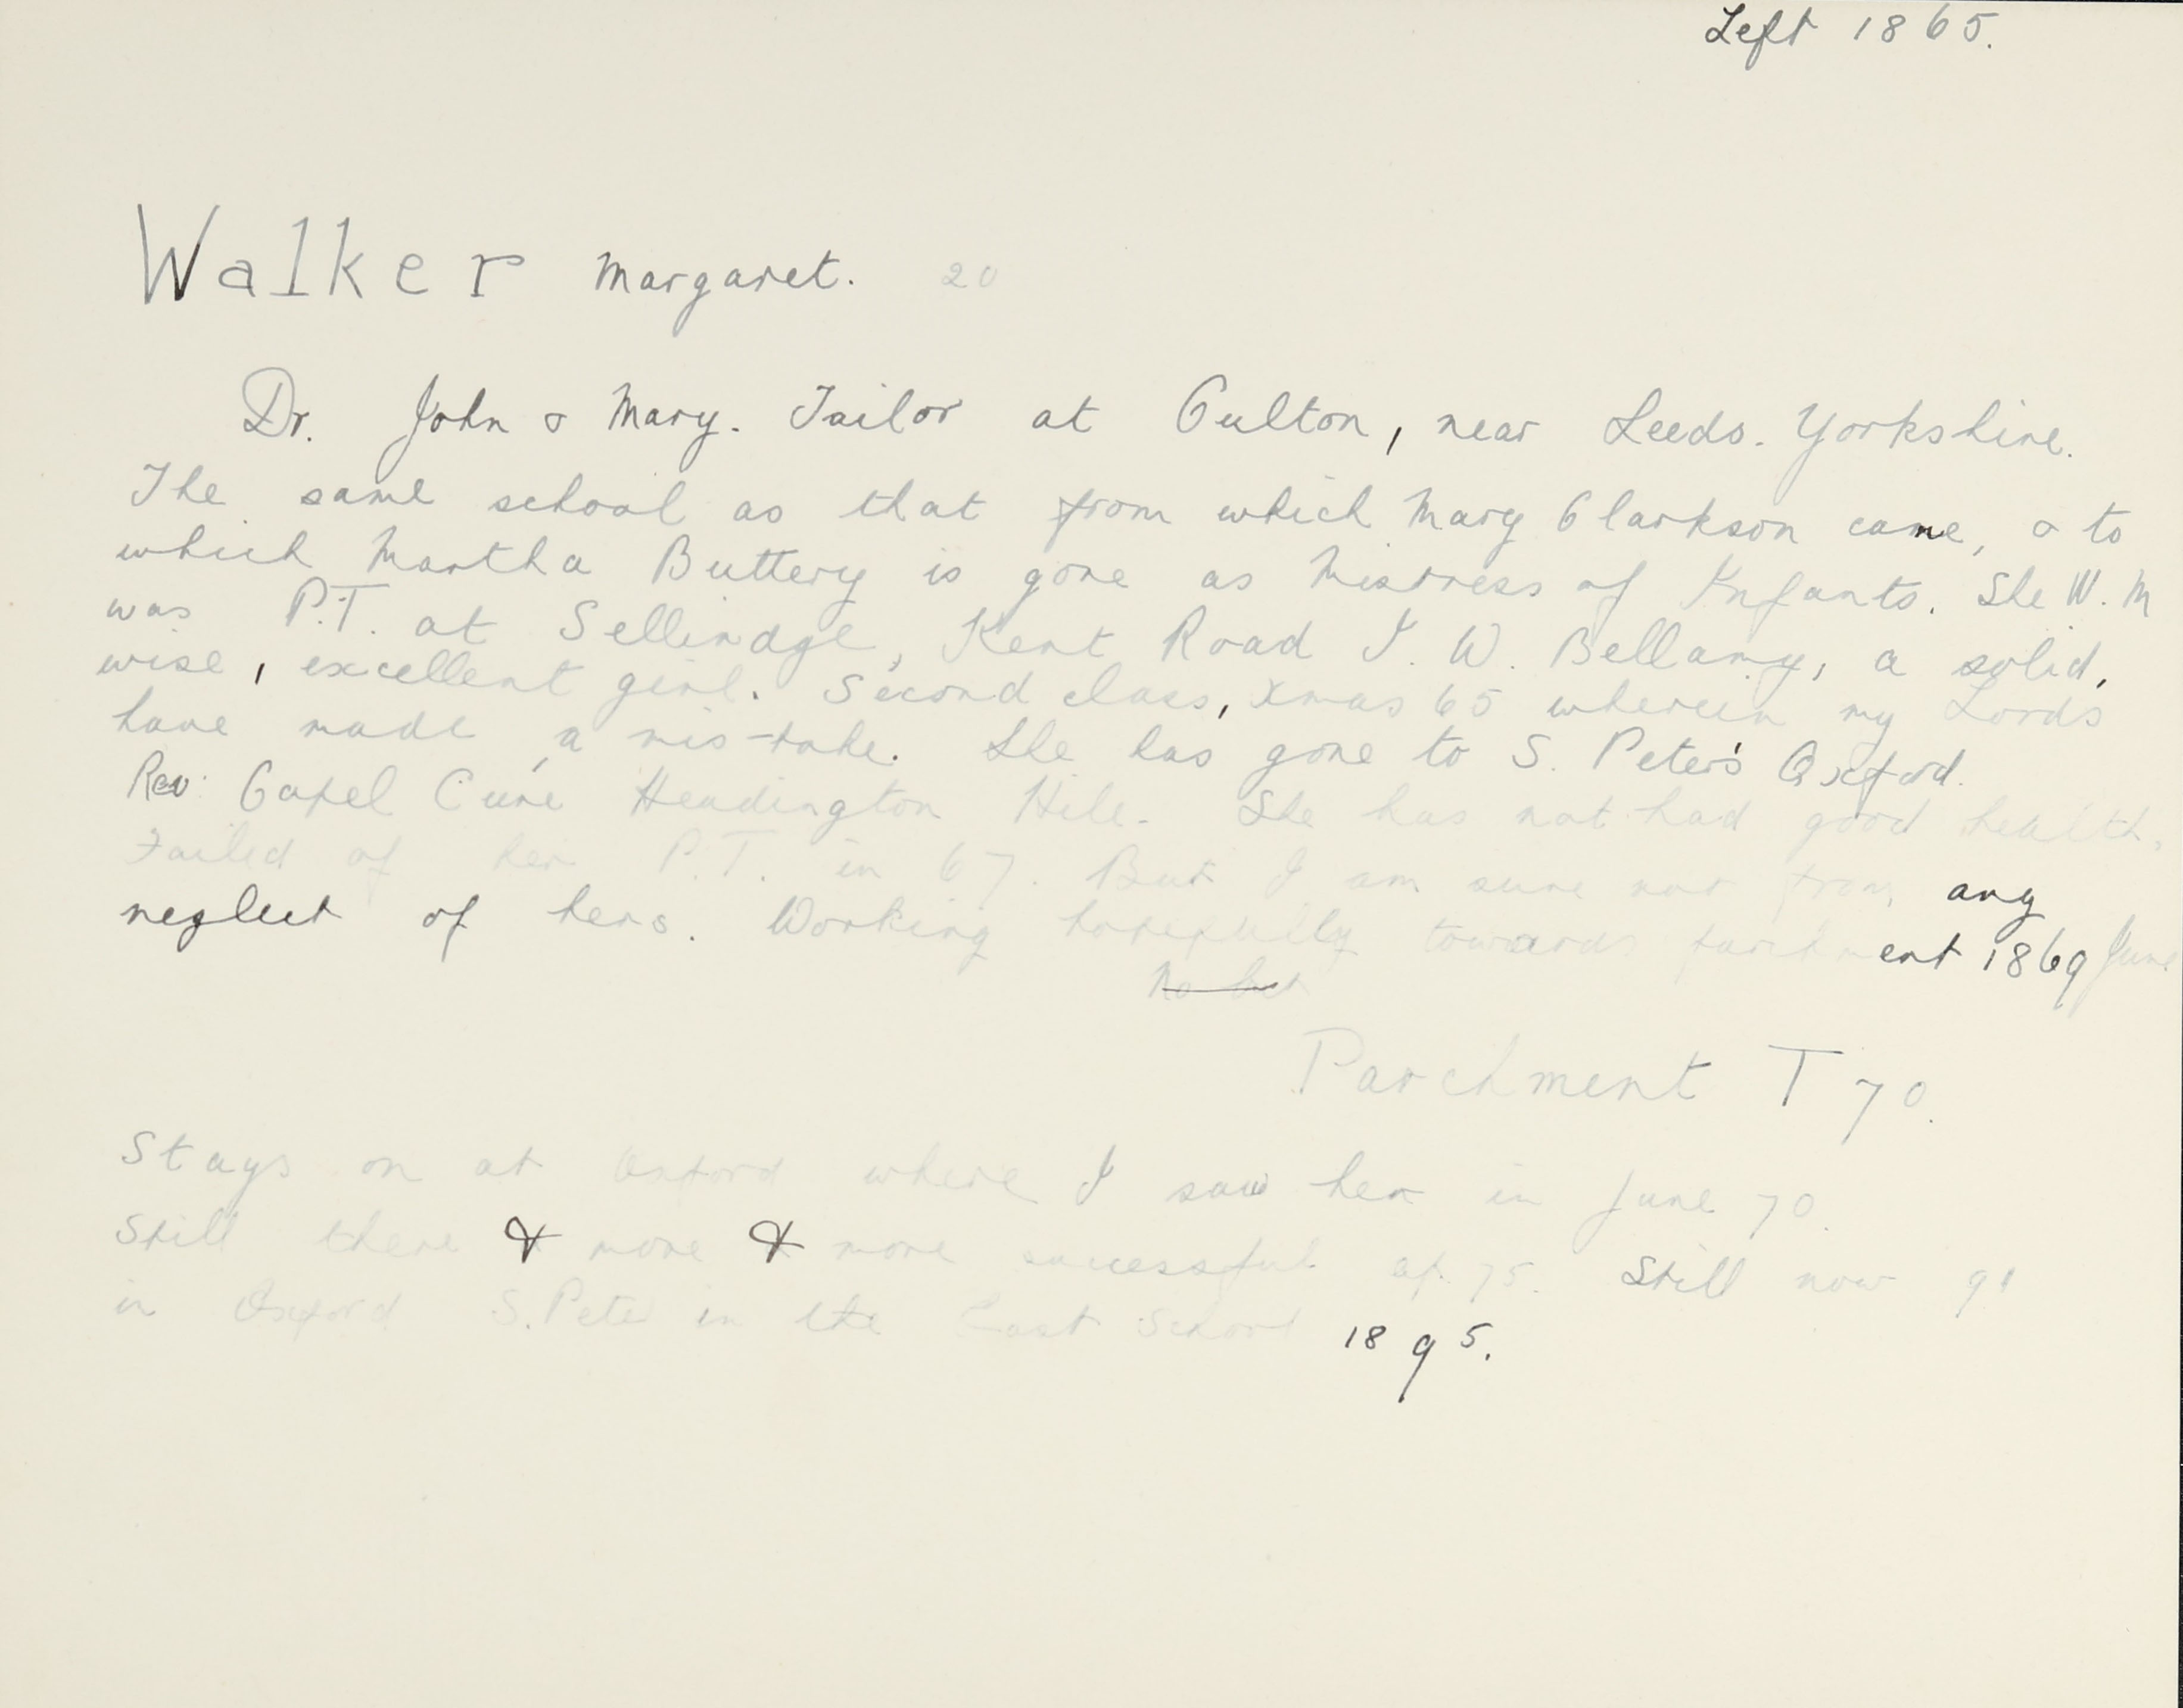 Left 1865.
Walker Margaret. 20
Dr. John & Mary. Tailor at Oulton, near Leeds. Yorkshire.
The same school as that from which Mary Clarkson came, & to
which Martha Buttery is gone as Mistress of Infants. She W. M
was P.T. at Sellindge, Kent Road J. W. Bellamy, a solid,
wise, excellent girl. Second class, Xmas 65 wherein my Lords
have made a mis-take. She has gone to S. Peter's Oxford.
Rev: Capel Cure Headington Hill. She has not had good health,
Failed of her P.T. in 67. But I am sure not from any
neglect of hers. Working hopefully towards parchment 1869 June
Parchment T 70.
Stays on at Oxford where I saw her in June 70.
Still there & more & more successful ap. 75. Still now 91
in Oxford S. Peter in the East School 1895.